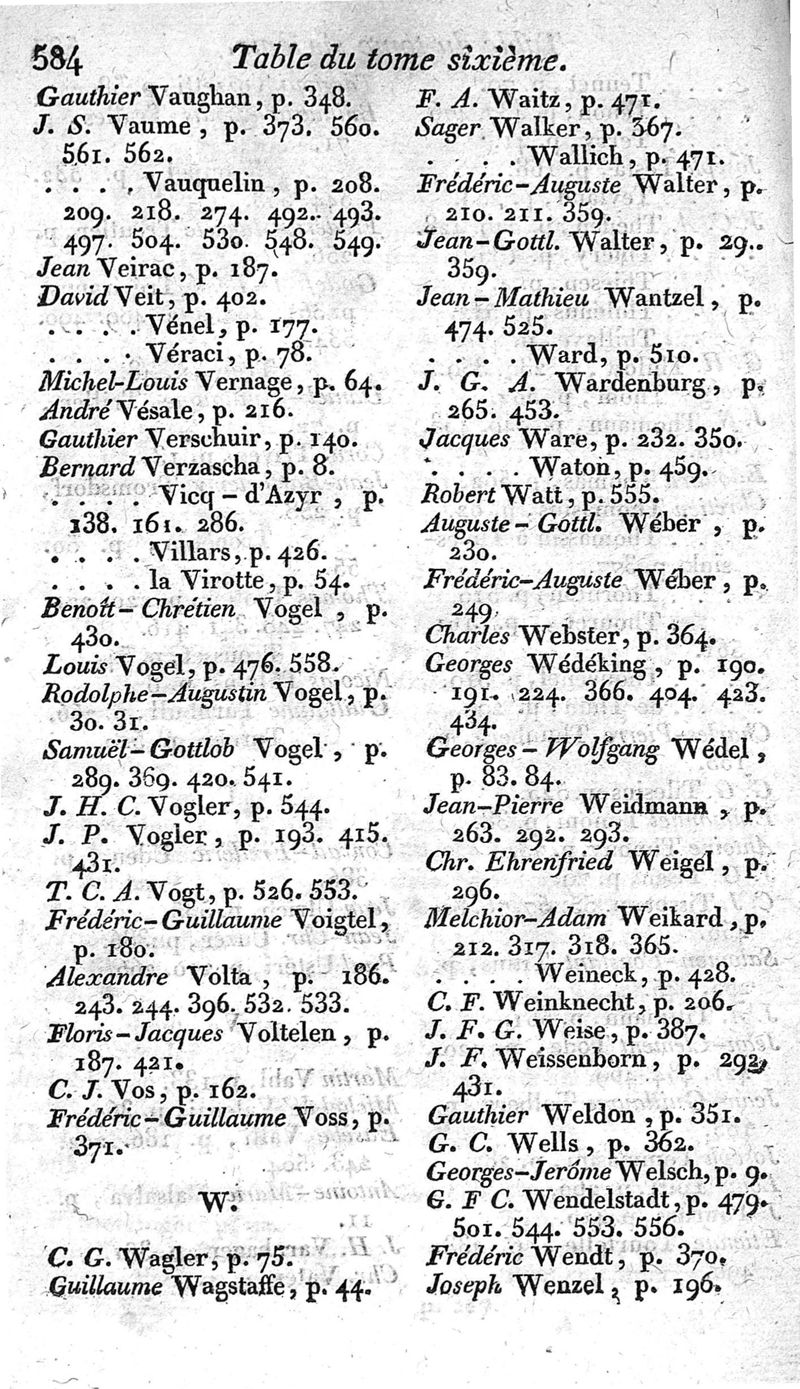 584 Table du tome sixième.
Gauthier Vaughan, p. 348.
J. S. Vaume, p. 373. 560.
561. 562.
. . . . Vauquelin, p. 208.
209. 218. 274. 492. 493.
497. 504. 530. 548. 549.
Jean Veirac, p. 187.
David Veit, p. 402.
. . . . Vénel, p. 177.
. . . . Véraci, p. 78.
Michel-Louis Vernage, p. 64.
André Vésale, p. 216.
Gauthier Verschuir, p. 140.
Bernard Verzascha, p. 8.
. . . . Vicq-d'Azyr, p.
138. 161. 286.
. . . . Villars, p. 426.
. . . . la Virotte, p. 54.
Benoît-Chrétien Vogel, p.
430.
Louis Vogel, p. 476. 558.
Rodolphe-Augustin Vogel, p.
30. 31.
Samuël-Gottlob Vogel, p.
289. 369. 420. 541.
J. H. C. Vogler, p. 544.
J. P. Vogler, p. 193. 415.
431.
T. C. A. Vogt, p. 526. 553.
Frédéric-Guillaume Voigtel,
p. 180.
Alexandre Volta, p. 186.
243. 244. 396. 532. 533.
Floris-Jacques Voltelen, p.
187. 421.
C. J. Vos, p. 162.
Frédéric-Guillaume Voss, p.
371.
W.
C. G. Wagler, p. 75.
Guillaume Wagstaffe, p. 44.
F. A. Waitz, p. 471.
Sager Walker, p. 367.
. . . . Wallich, p. 471.
Frédéric-Auguste Walter, p.
210. 211. 359.
Jean-Gottl. Walter, p. 29.
359.
Jean-Mathieu Wantzel, p.
474. 525.
. . . . Ward, p. 510.
J. G. A. Wardenburg, p.
265. 453.
Jacques Ware, p. 232. 350.
. . . . Waton, p. 459.
Robert Watt, p. 555.
Auguste-Gottl. Wéber, p.
230.
Frédéric-Auguste Wéber, p.
249.
Charles Webster, p. 364.
Georges Wédéking, p. 190.
191. 224. 366. 404. 423.
434.
Georges-Wolfgang Wédel,
p. 83. 84.
Jean-Pierre Weidmann, p.
263. 292. 293.
Chr. Ehrenfried Weigel, p.
296.
Melchior-Adam Weikard, p.
212. 317. 318. 365.
. . . . Weineck, p. 428.
C. F. Weinknecht, p. 206.
J. F. G. Weise, p. 387.
J. F. Weissenborn, p. 292,
431.
Gauthier Weldon, p. 351.
G. C. Wells, p. 362.
Georges-Jerôme Welsch, p. 9.
G. F C. Wendelstadt, p. 479.
501. 544. 553. 556.
Frédéric Wendt, p. 370.
Joseph Wenzel, p. 196.